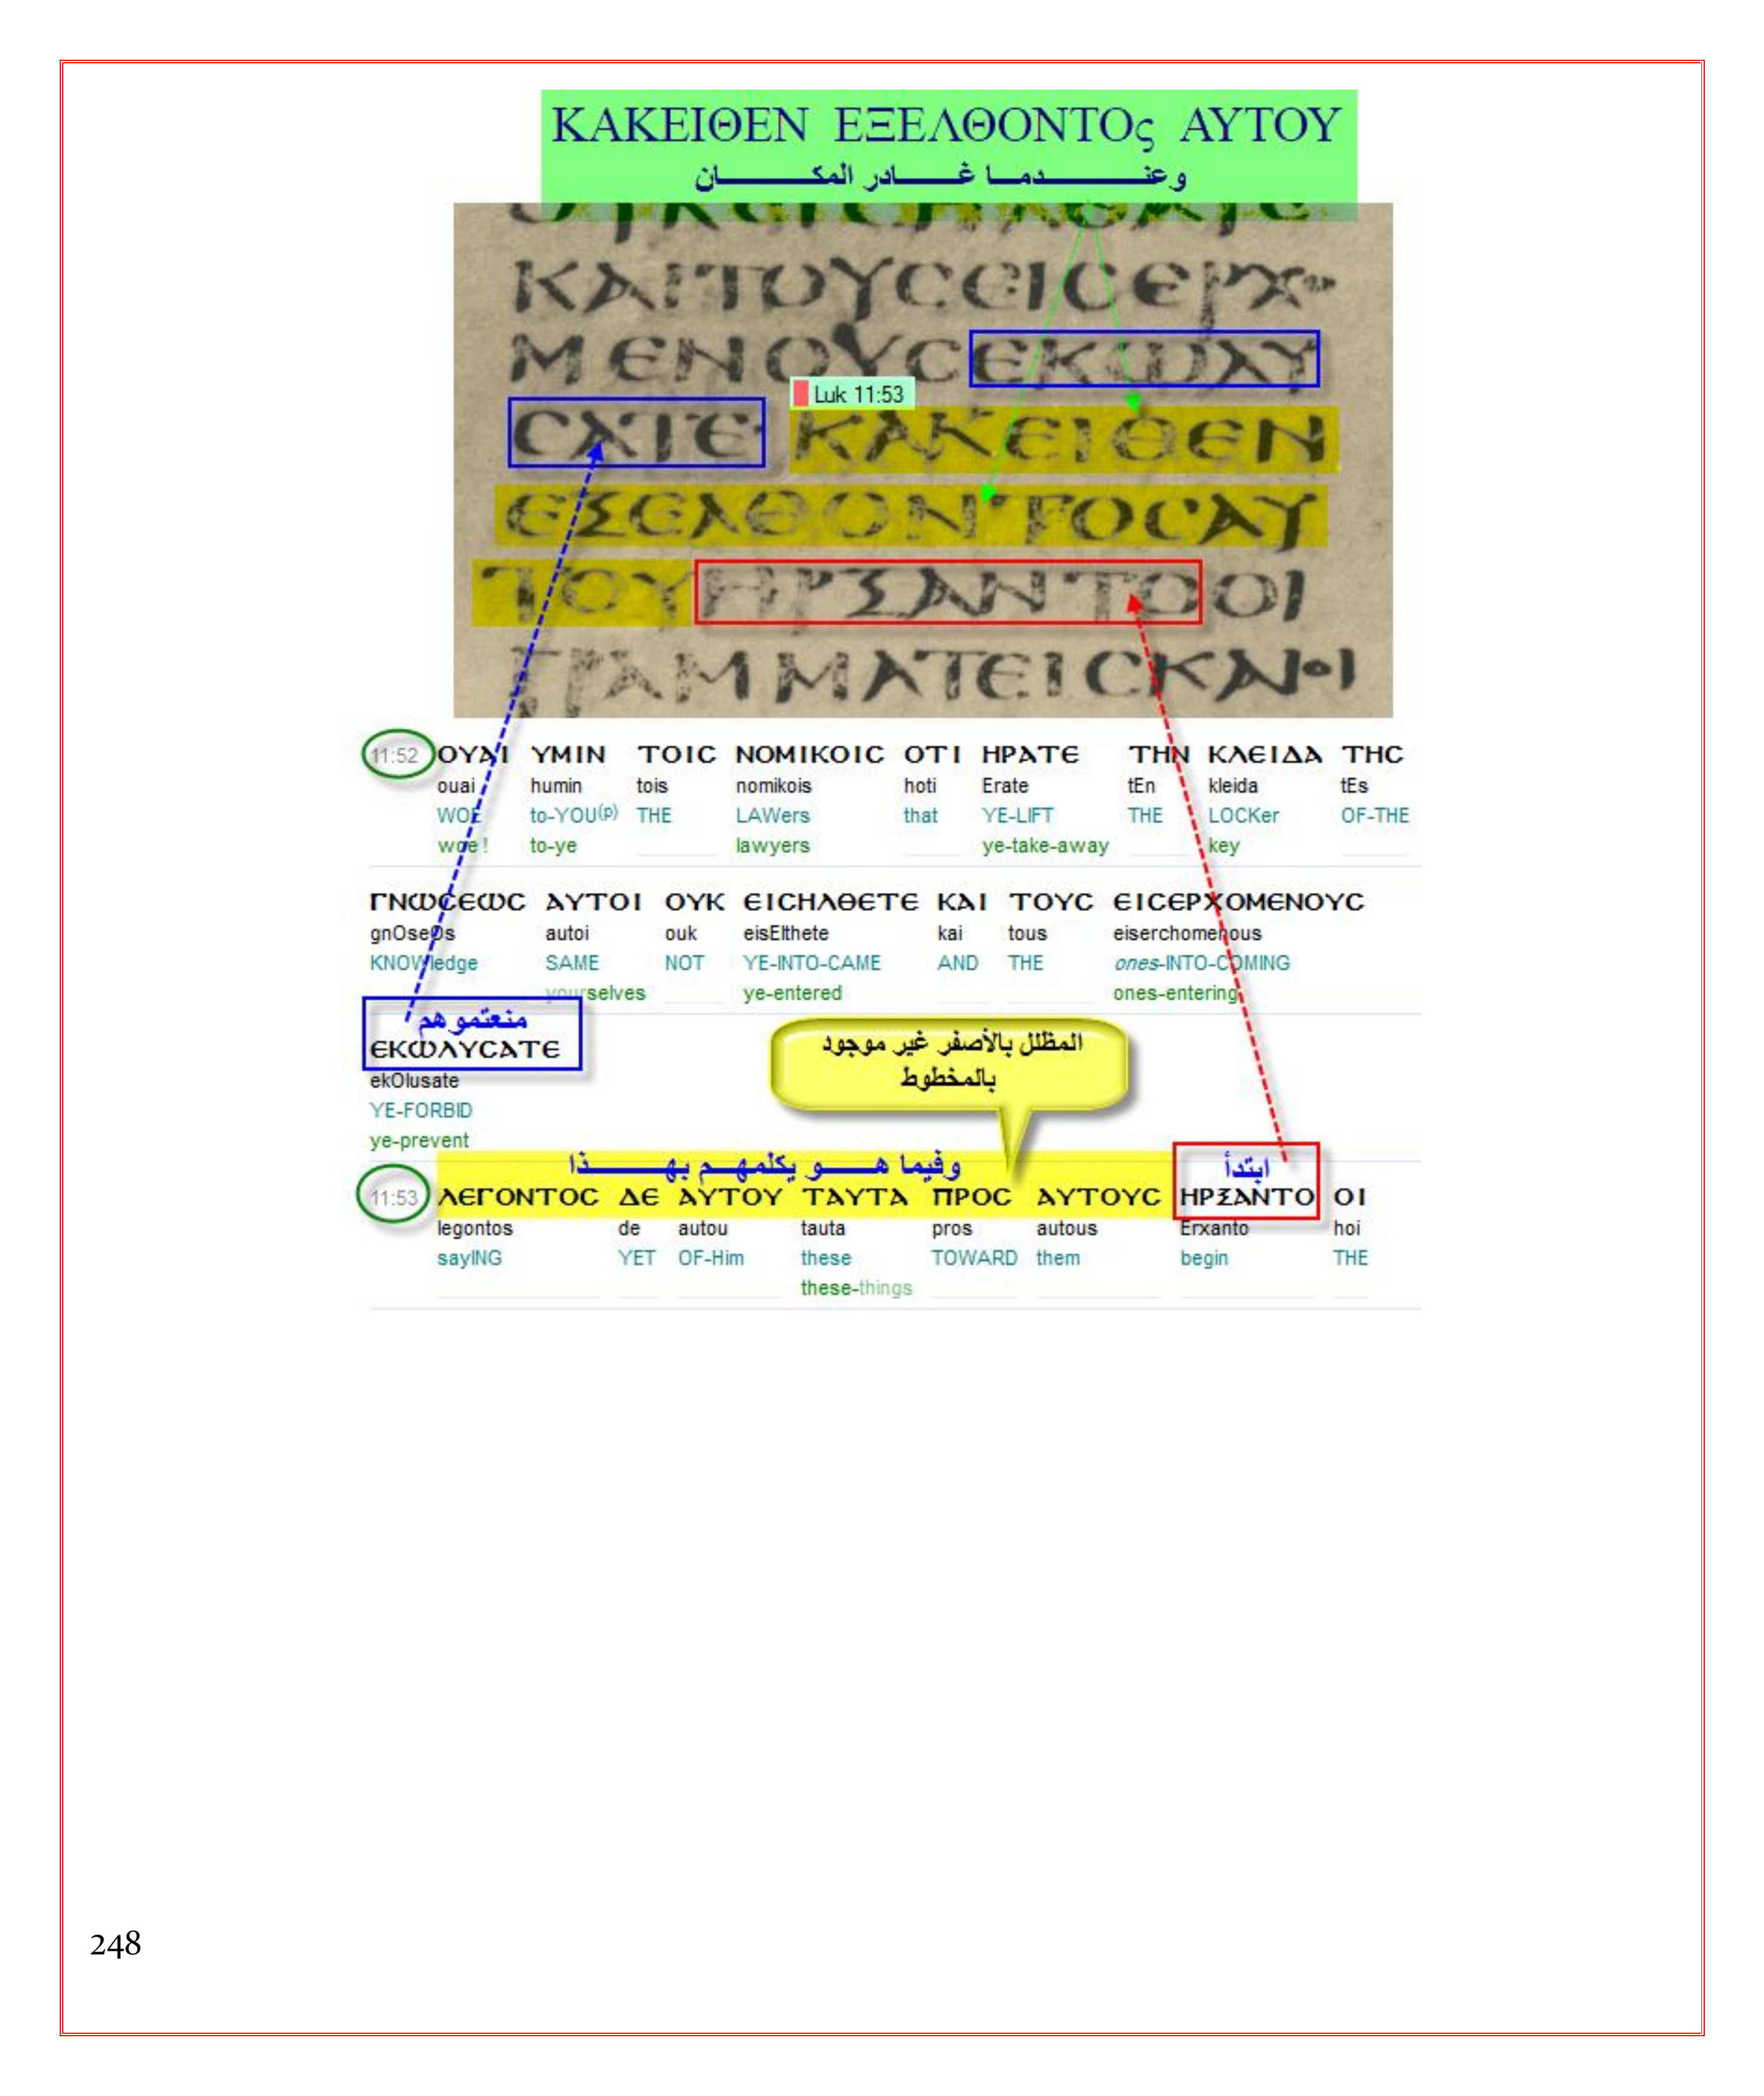 ΚΑΚΕΙΘΕΝ ΕΞΕΛΘΟΝΤΟς ΑΥΤΟΥ
وعنـــــدمـا غـــادر المكـــــان
ΚΑΙΤΟΥϹΕΙϹΕΡΧΟ
ΜΕΝΟΥϹΕΚΩΛΥ
Luk 11:53
ϹΑΤΕ ΚΑΚΕΙΘΕΝ
ΕΞΕΛΘΟΝΤΟϹΑΥ
ΤΟΥΗΡΞΑΝΤΟΟΙ
ΓΡΑΜΜΑΤΕΙϹΚΑΙΟΙ
11:52 ΟΥΑΙ ΥΜΙΝ ΤΟΙϹ ΝΟΜΙΚΟΙϹ ΟΤΙ ΗΡΑΤΕ ΤΗΝ ΚΛΕΙΔΑ ΤΗϹ
ouai humin tois nomikois hoti Erate tEn kleida tEs
WOE to-YOU(p) THE LAWers that YE-LIFT THE LOCKer OF-THE
woe ! to-ye lawyers ye-take-away key
ΓΝΩϹΕΩϹ ΑΥΤΟΙ ΟΥΚ ΕΙϹΗΛΘΕΤΕ ΚΑΙ ΤΟΥϹ ΕΙϹΕΡΧΟΜΕΝΟΥϹ
gnOseOs autoi ouk eisElthete kai tous eiserchomenous
KNOWledge SAME NOT YE-INTO-CAME AND THE ones-INTO-COMING
yourselves ye-entered ones-entering
منعتموهم
ΕΚΩΛΥϹΑΤΕ
ekOlusate
YE-FORBID
ye-prevent
المظلل بالأصفر غير موجود
بالمخطوط
وفيما هـــو يكلمهـــم بهــــذا
ابتدأ
11:53 ΛΕΓΟΝΤΟϹ ΔΕ ΑΥΤΟΥ ΤΑΥΤΑ ΠΡΟϹ ΑΥΤΟΥϹ ΗΡΞΑΝΤΟ ΟΙ
legontos de autou tauta pros autous Erxanto hoi
sayING YET OF-Him these TOWARD them begin THE
these-things
248